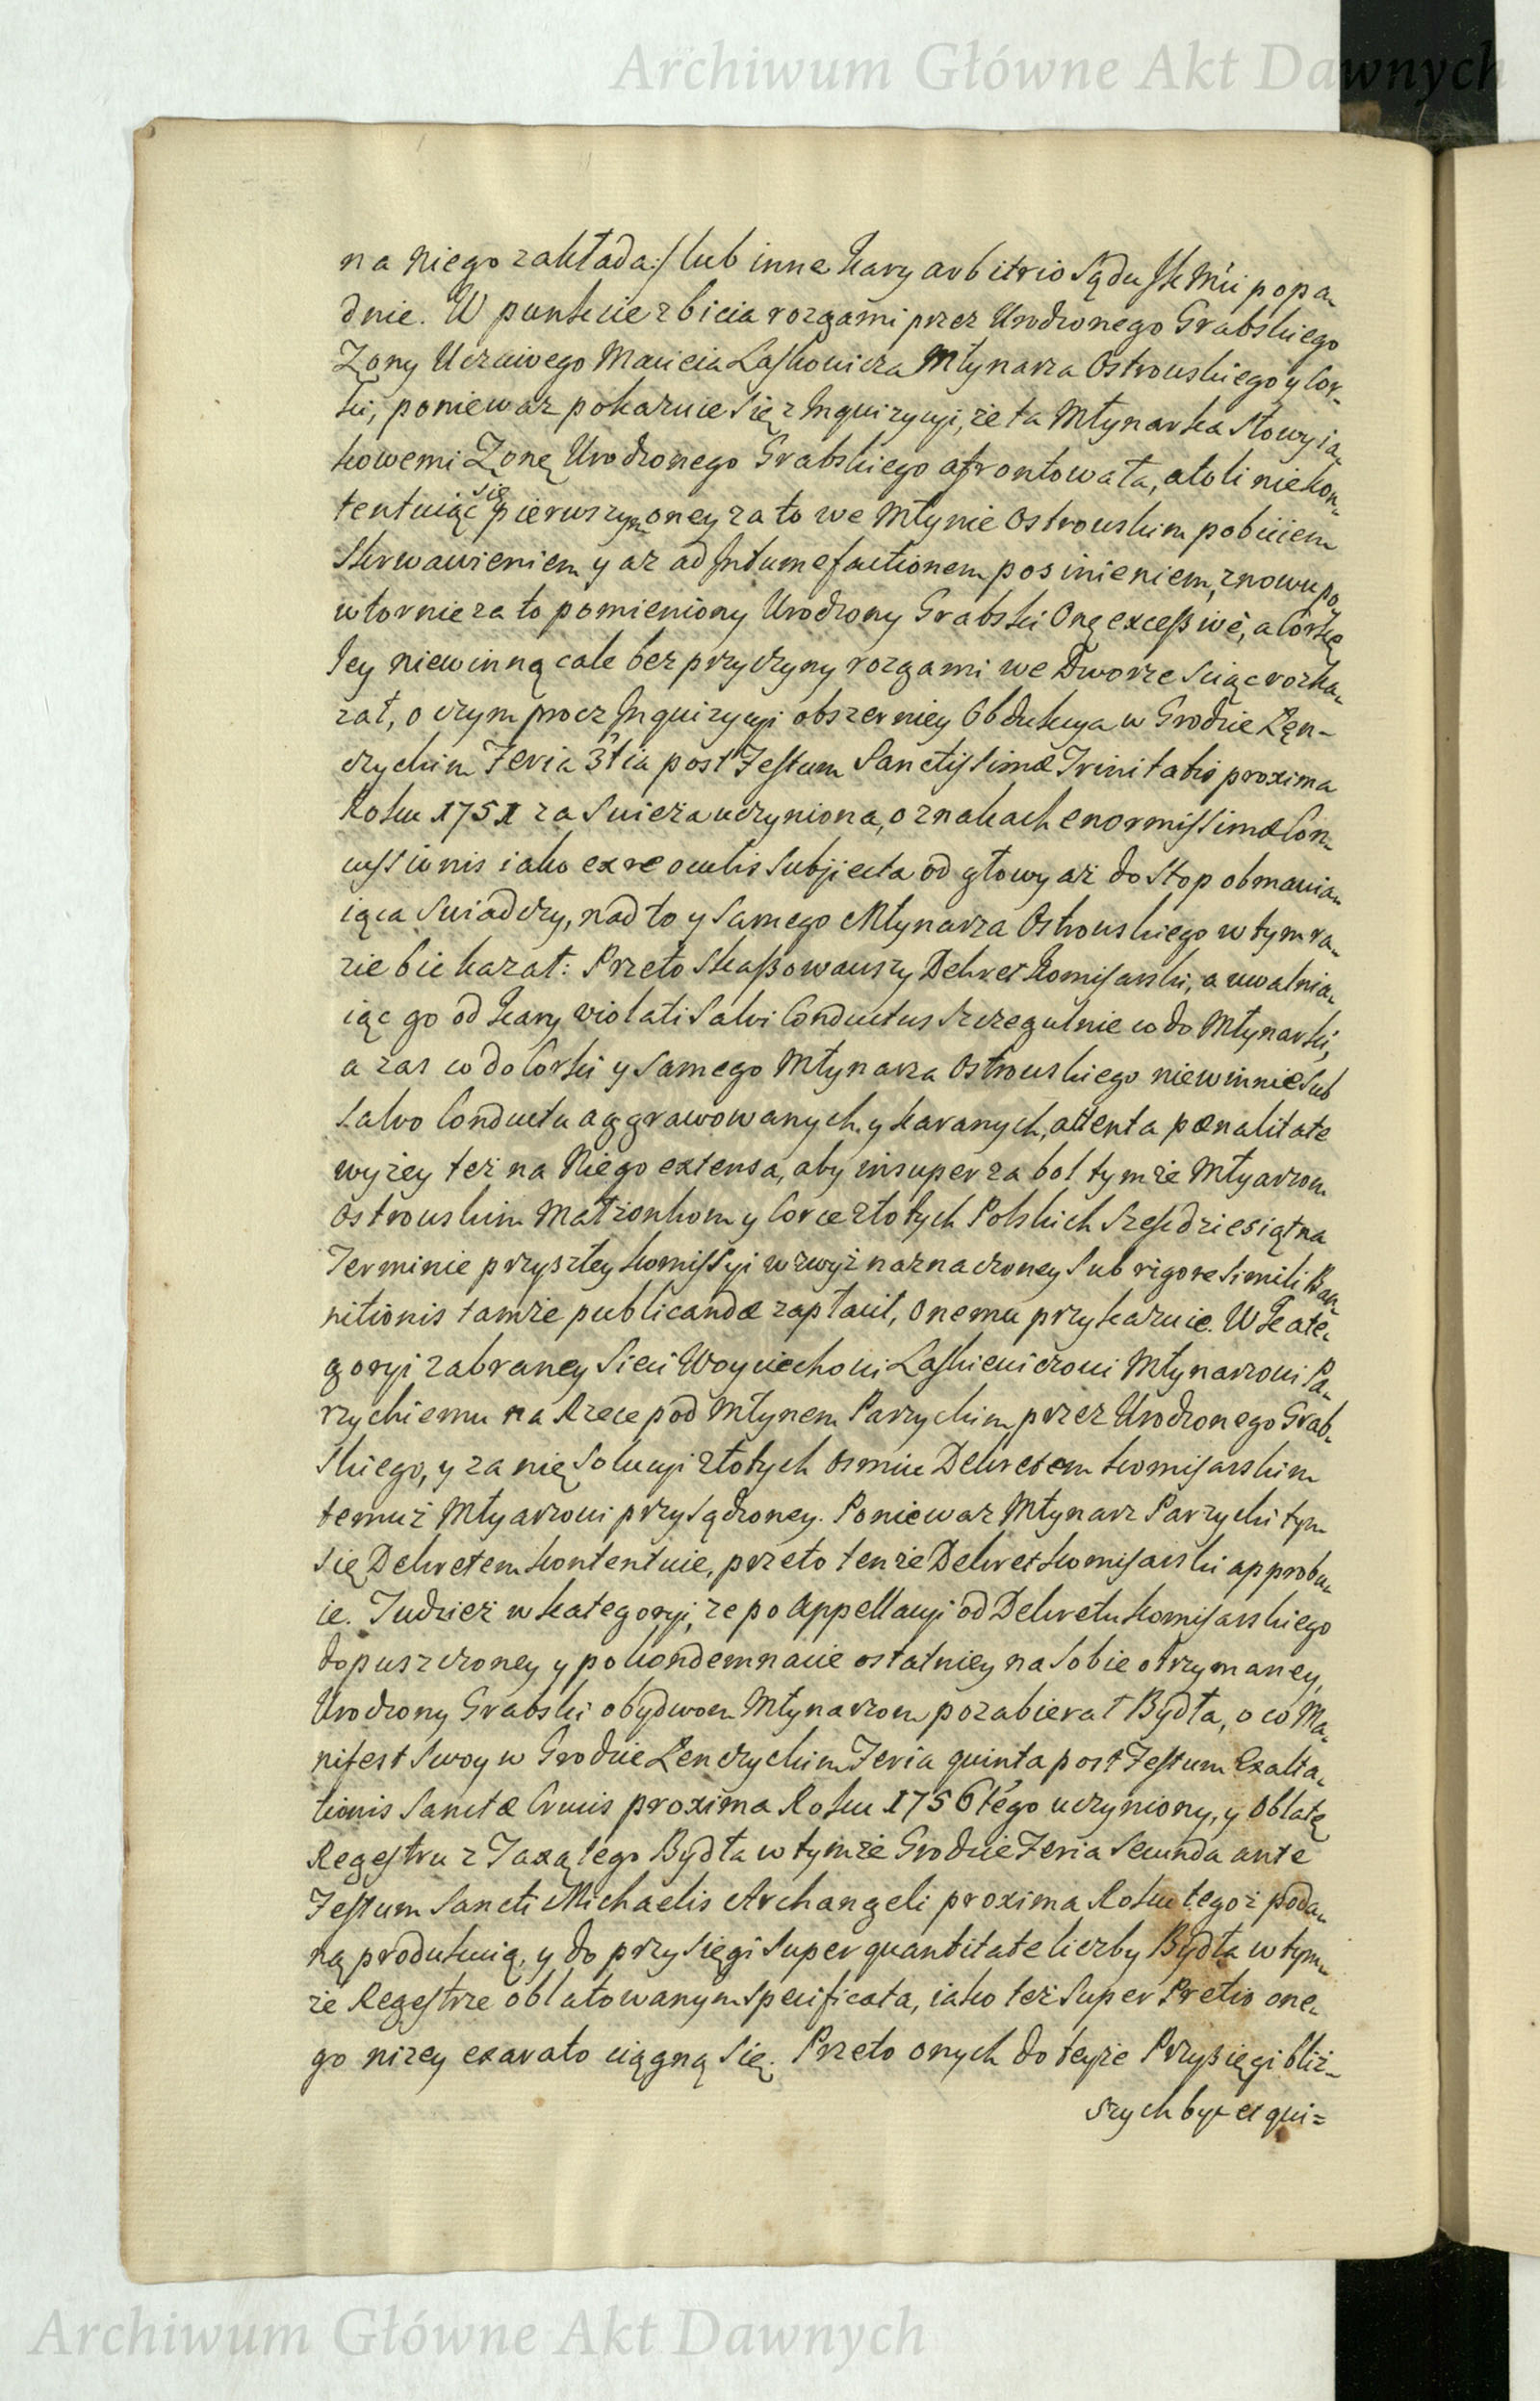 Archiwum Główne Akt Dawnych
na Niego zakłada:/ lub inne kary arbitrio Sądu JKMci popa-
dnie. W punkcie zbicia rozgami przez Urodzonego Grabskiego
Żony Uczciwego Macieia Laskowicza Młynarza Ostrowskiego y Cor-
ki, poniewaz pokazuie Się z Inquizycyi, że ta Młynarka Słowy ia-
kowemi Zonę Urodzonego Grabskiego afrontowała, atoli niekon-
tentuiąc się pierwszym oney za to we Młynie Ostrowskim pobiciem
Skrwawieniem y az ad Intumefactionem posinieniem, znowu po-
wtornie za to pomieniony Urodzony Grabski Onę excessivè, a Corkę
Iey niewinną cale bez przyczyny rozgami we Dworze Sciąc rozka-
zał, o czym procz Inquizycyi obszerniey Obdukcya w Grodzie Łęn-
czyckim Feria 3tia post Festum Sanctissimæ Trinitatis proxima
Roku 1751 za Swieża uczyniona, o znakach enormissimæ Con-
cussionis iako ex re oculis Subjecta od głowy aż do Stop obmawia-
iąca Swiadczy, nad to y Samego Młynarza Ostrowskiego w tym ra-
zie bic kazał: Przeto Skassowawszy Dekret Komisarski, a uwalnia-
iąc go od kary violati Salvi Conductus Szczegulnie co do Młynarki,
a zas co do Corki y Samego Młynarza Ostrowskiego niewinnie Sub
Salvo Conductu aggrawowanych y karanych, attenta pœnalitate
wyżey też na Niego extensa, aby insuper za bol tymże Młyarzom
Ostrowskim Małżonkom y Corce złotych Polskich Szesćdziesiąt na
Terminie przyszłey Komissyi wzwyż naznaczoney Sub rigore Simili Ban-
nitionis tamże publicandæ zapłacił, Onemu przykazuie. W Kate-
goryi zabraney Sieci Woyciechowi Laskiewiczowi Młynarzowi Pa-
rzyckiemu na Rzece pod Młynem Parzyckim przez Urodzonego Grab-
Skiego, y za nię Solucyi złotych osmiu Dekretem Komisarskim
temuż Młyarzowi przysądzoney. Poniewaz Młynarz Parzycki tym
Się Dekretem kontentuie, przeto tenże Dekret Komisarski approbu-
ie. Tudzież w kategoryi, ze po Appellacyi od Dekretu Komisarskiego
dopuszczoney y po kondemnacie ostatniey na Sobie otrzymaney,
Urodzony Grabski obydwom Młynarzom pozabierał Bydła, o co Ma-
nifest Swoy w Grodzie Łenczyckim Feria quinta post Festum Exalta-
tionis Sanctæ Crucis proxima Roku 1756tego uczyniony, y Oblatę
Regestru z Taxą tego Bydła w tymże Grodzie Feria Secunda ante
Festum Sancti Michaelis Archangeli proxima Roku tegoż poda-
ną produkuią, y do przysięgi Super quantitate liczby Bydła w tym-
że Regestrze oblatowanym Specificata, iako też Super Pretio one-
go niżey exarato ciągną Się. Przeto onych do teyże Przysięgi bliż-
szych być et qui=
Archiwum Główne Akt Dawnych